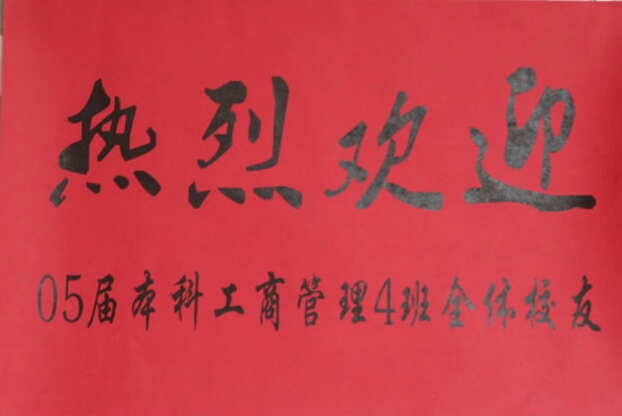 热烈欢迎
05届本科工商管理4班全体校友